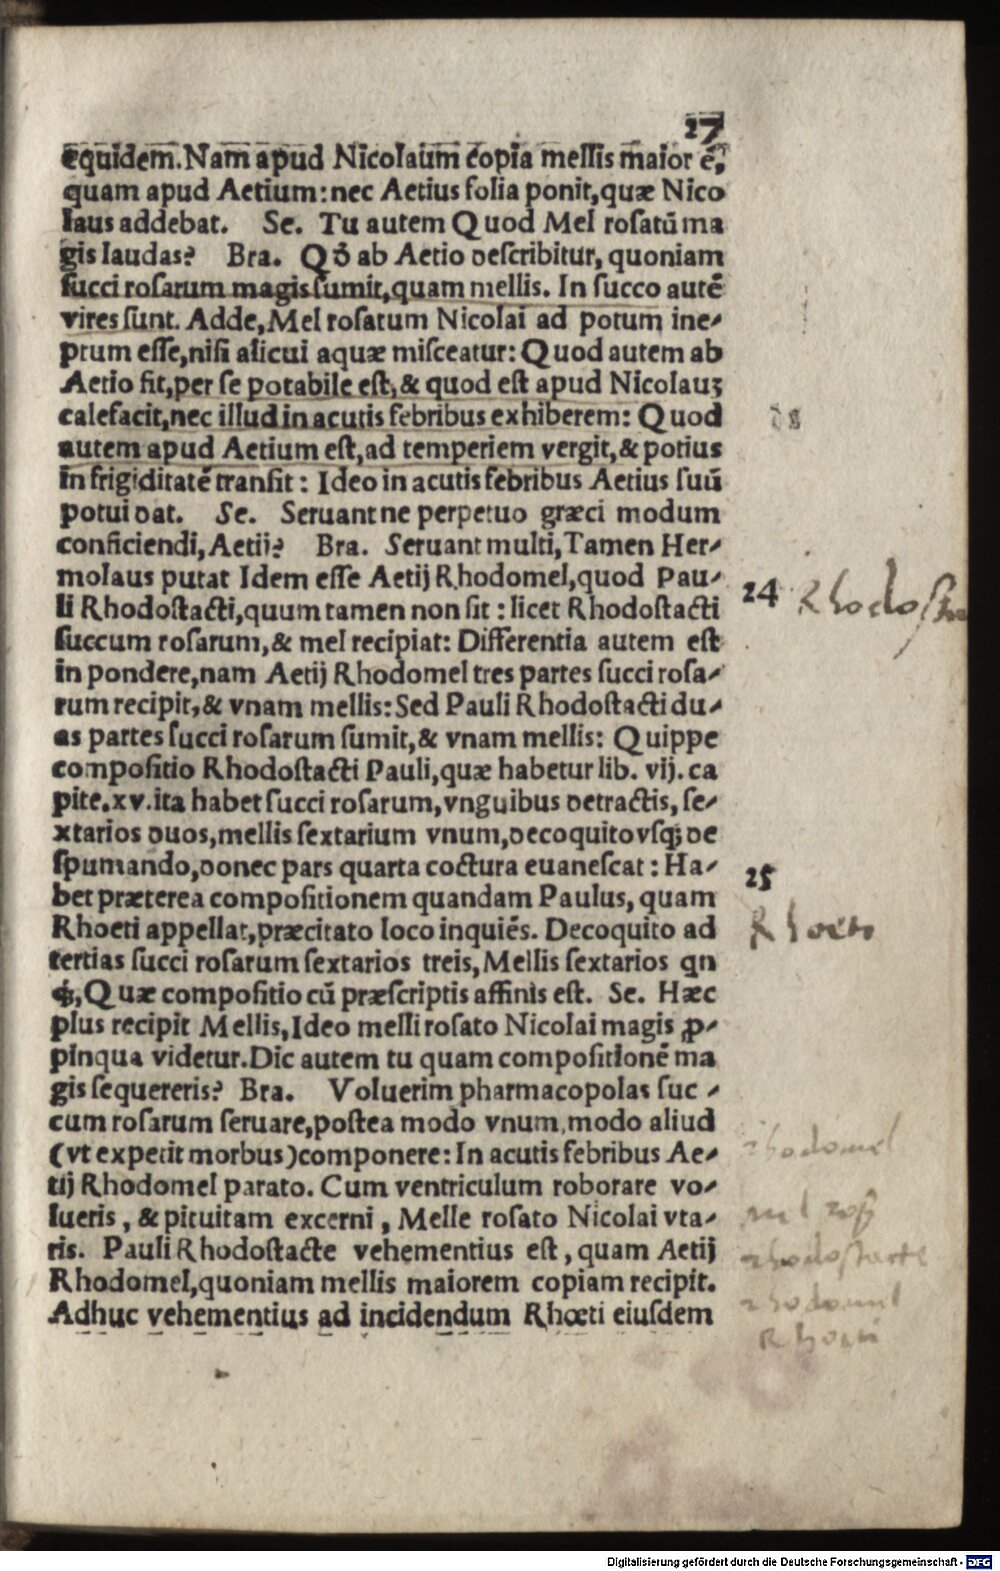 27
equidem. Nam apud Nicolaum copia mellis maior ē,
quam apud Aetium: nec Aetius folia ponit, quæ Nico
laus addebat. Se. Tu autem Quod Mel rosatū ma
gis laudas? Bra. Qđ ab Aetio describitur, quoniam
succi rosarum magis sumit, quam mellis. In succo autē
vires sunt. Adde, Mel rosatum Nicolai ad potum ine-
ptum esse, nisi alicui aquæ misceatur: Quod autem ab
Aetio fit, per se potabile est, & quod est apud Nicolauꝫ
calefacit, nec illud in acutis febribus exhiberem: Quod
autem apud Aetium est, ad temperiem vergit, & potius
in frigiditatē transit: Ideo in acutis febribus Aetius suū
potui dat. Se. Seruant ne perpetuo græci modum
conficiendi, Aetij? Bra. Seruant multi, Tamen Her-
molaus putat Idem esse Aetij Rhodomel, quod Pau-
li Rhodostacti, quum tamen non sit: licet Rhodostacti
24 Rhodosta
succum rosarum, & mel recipiat: Differentia autem est
in pondere, nam Aetij Rhodomel tres partes succi rosa-
rum recipit, & vnam mellis: Sed Pauli Rhodostacti du-
as partes succi rosarum sumit, & vnam mellis: Quippe
compositio Rhodostacti Pauli, quæ habetur lib. vij. ca
pite. xv. ita habet succi rosarum, vnguibus detractis, se-
xtarios duos, mellis sextarium vnum, decoquito vsqꝫ de
spumando, donec pars quarta coctura euanescat: Ha-
25
bet præterea compositionem quandam Paulus, quam
Rhoeti appellat, præcitato loco inquiēs. Decoquito ad
Rhoeti
tertias succi rosarum sextarios treis, Mellis sextarios qn
qꝫ, Quæ compositio cū præscriptis affinis est. Se. Hæc
plus recipit Mellis, Ideo melli rosato Nicolai magis ꝓ-
pinqua videtur. Dic autem tu quam compositionē ma
gis sequereris? Bra. Voluerim pharmacopolas suc-
cum rosarum seruare, postea modo vnum, modo aliud
(vt expetit morbus) componere: In acutis febribus Ae-
rhodomel
tij Rhodomel parato. Cum ventriculum roborare vo-
lueris, & pituitam excerni, Melle rosato Nicolai vta-
mel ros
ris. Pauli Rhodostacte vehementius est, quam Aetij
rhodostacte
Rhodomel, quoniam mellis maiorem copiam recipit.
rhodomel
Adhuc vehementius ad incidendum Rhœti eiusdem
Rhoeti
Digitalisierung gefördert durch die Deutsche Forschungsgemeinschaft - DFG